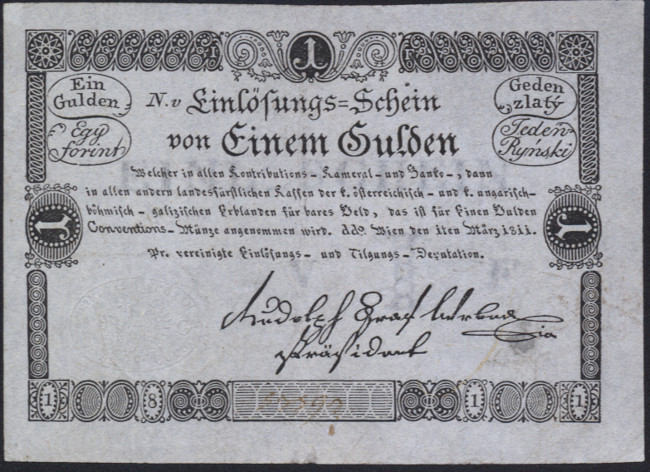 1
F F
Ein
Gulden
Egÿ
forint
Geden
zlatý
Jeden
Ryński
N. v Einlösungs=Schein
von Einem Gulden
Welcher in allen Kontributions- Kameral- und Banko-, dann
in allen andern landesfürstlichen Kassen der k. österreichisch- und k. ungarisch-
böhmisch- galizischen Erblanden für bares Geld, das ist für Einen Gulden
Conventions- Münze angenommen wird. ddo. Wien den 1ten März 1811.
Pr. vereinigte Einlösungs- und Tilgungs- Deputation.
1 1
Rudolph Graf Wrbna
Präsident
1 8 1 1